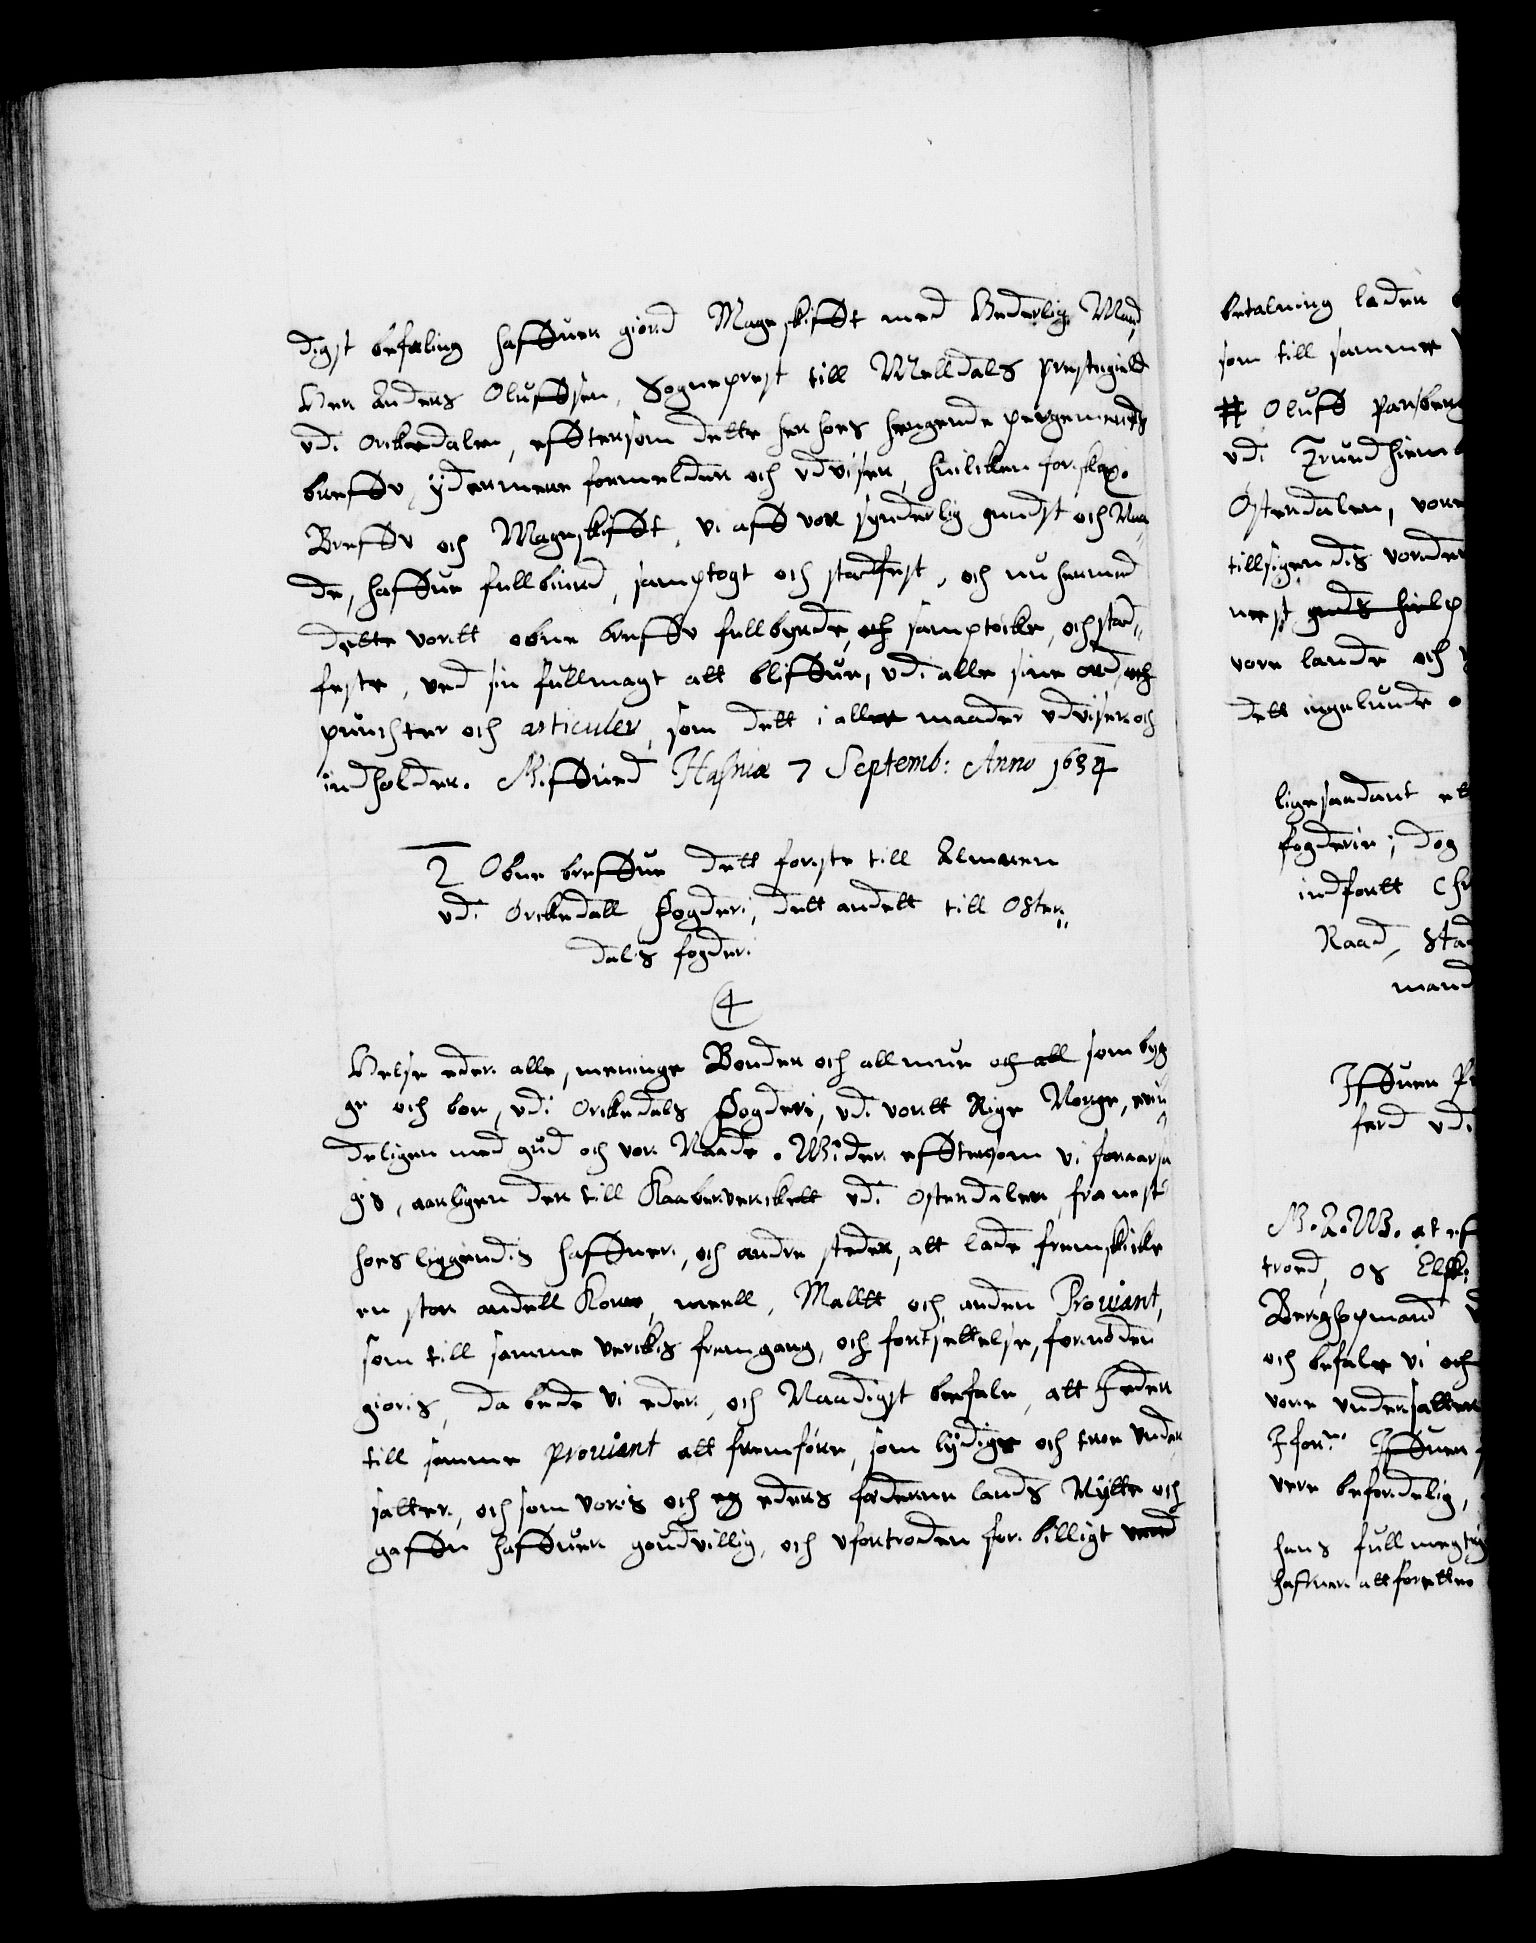 digst befaling haffuer giord Mageskifft med Hederlig Mand
Her Anders Oluffsen, Sogneprest till Melldals prestegield
vdi Orckedalen, efftersom dette her hoes hengende pergemends
breffv ydermere formelder och vdviser, huilcken forskr:
Breffv och Mageskifft, vi aff vor synderlig gundst och Naa
de, haffue fullbiurd, samptogt och stadfest, och nu hermed
dette vortt obne breffv fullbyrde, och samptocke, och stad„
feste, ved sin fullmagt att bliffue, vdi alle sine ord, och
puncter och articuler, som dett i aller maader vdviser och
indholder. Giffued Hafniæ 7 Septemb: Anno 1634
2 Obne breffue dett forste till Almuen
vdi Orckedall Fogderi, dett andett till Oster„
dals fogderi
4
Helse eder alle, meninge Bonder och allmue och all som byg
ge och boe, vdi Orckedals Fogderi, vdi vortt Rige Norge, euin
deligen med gud och vor Naade. Wider efftersom vi foraarsa
gis, aarligen der till Kaaberverckett vdi Osterdalen, fra nest
hoes liggendis haffner, och andre steder, att lade fremskicke
en stor andell Korn, meell, Malltt och anden Proviant,
som till samme verckis fremgang, och fortsettelse, fornøden
gioris, da bede vi eder, och Naadigst befale, att I eder
till samme proviant att fremføre, som lydige och troe Under
satter, och som voris och eg eders fæderne lands Nytte och
gaffn haffuer goudvillig, och vfortroden for billigt verd
betalning lader
som till samme
# Oluff Parsberg
vdi Trundhiem
Osterdalen, vore
tillsigendis vorder
nest guds hielp
vore lande och
dett ingelunde
ligesaadant ett
fogderie; dog
indfortt Chr
Raad, Sta
mand
Iffuer Pr
ferd vdi
G. A. W. at eff
troed, os Elsk:
Berghopmand
och befale vi och
vore undersatter
I forne Iffuer
vere beforderlig,
hans fullmegtig
haffuer att forette